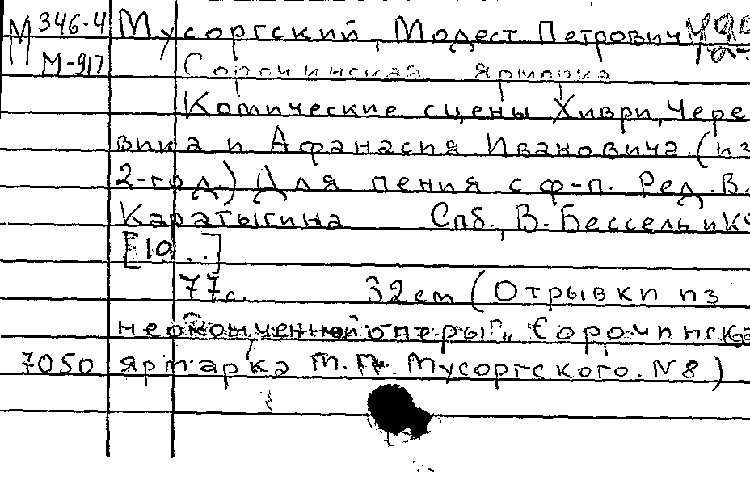 М 346-4 Мусоргский, Модест Петрович
М-917 Сорочинская Ярмарка
Комические сцены Хиври, Чере
вика и Афанасия Ивановича (из
2-го д.) Для пения с ф-п. Ред. В.
Каратыгина Спб., В. Бессель и К°
[10..]
77с. 32 cm (Отрывки из
неоконченной оперы „Сорочинска
7050 ярмарка М.П. Мусоргского. N8)